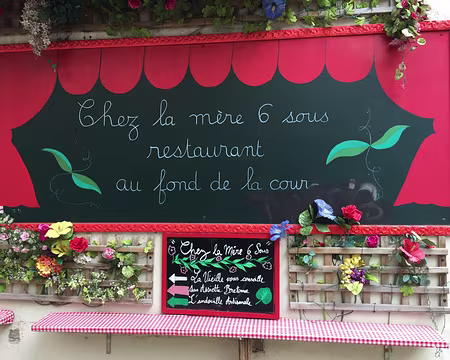 Chez la mère 6 sous
restaurant
au fond de la cour
Chez la Mère 6 Sous
La Vieille vous conseille
Son Assiette Bretonne
L'andouille Artisanale